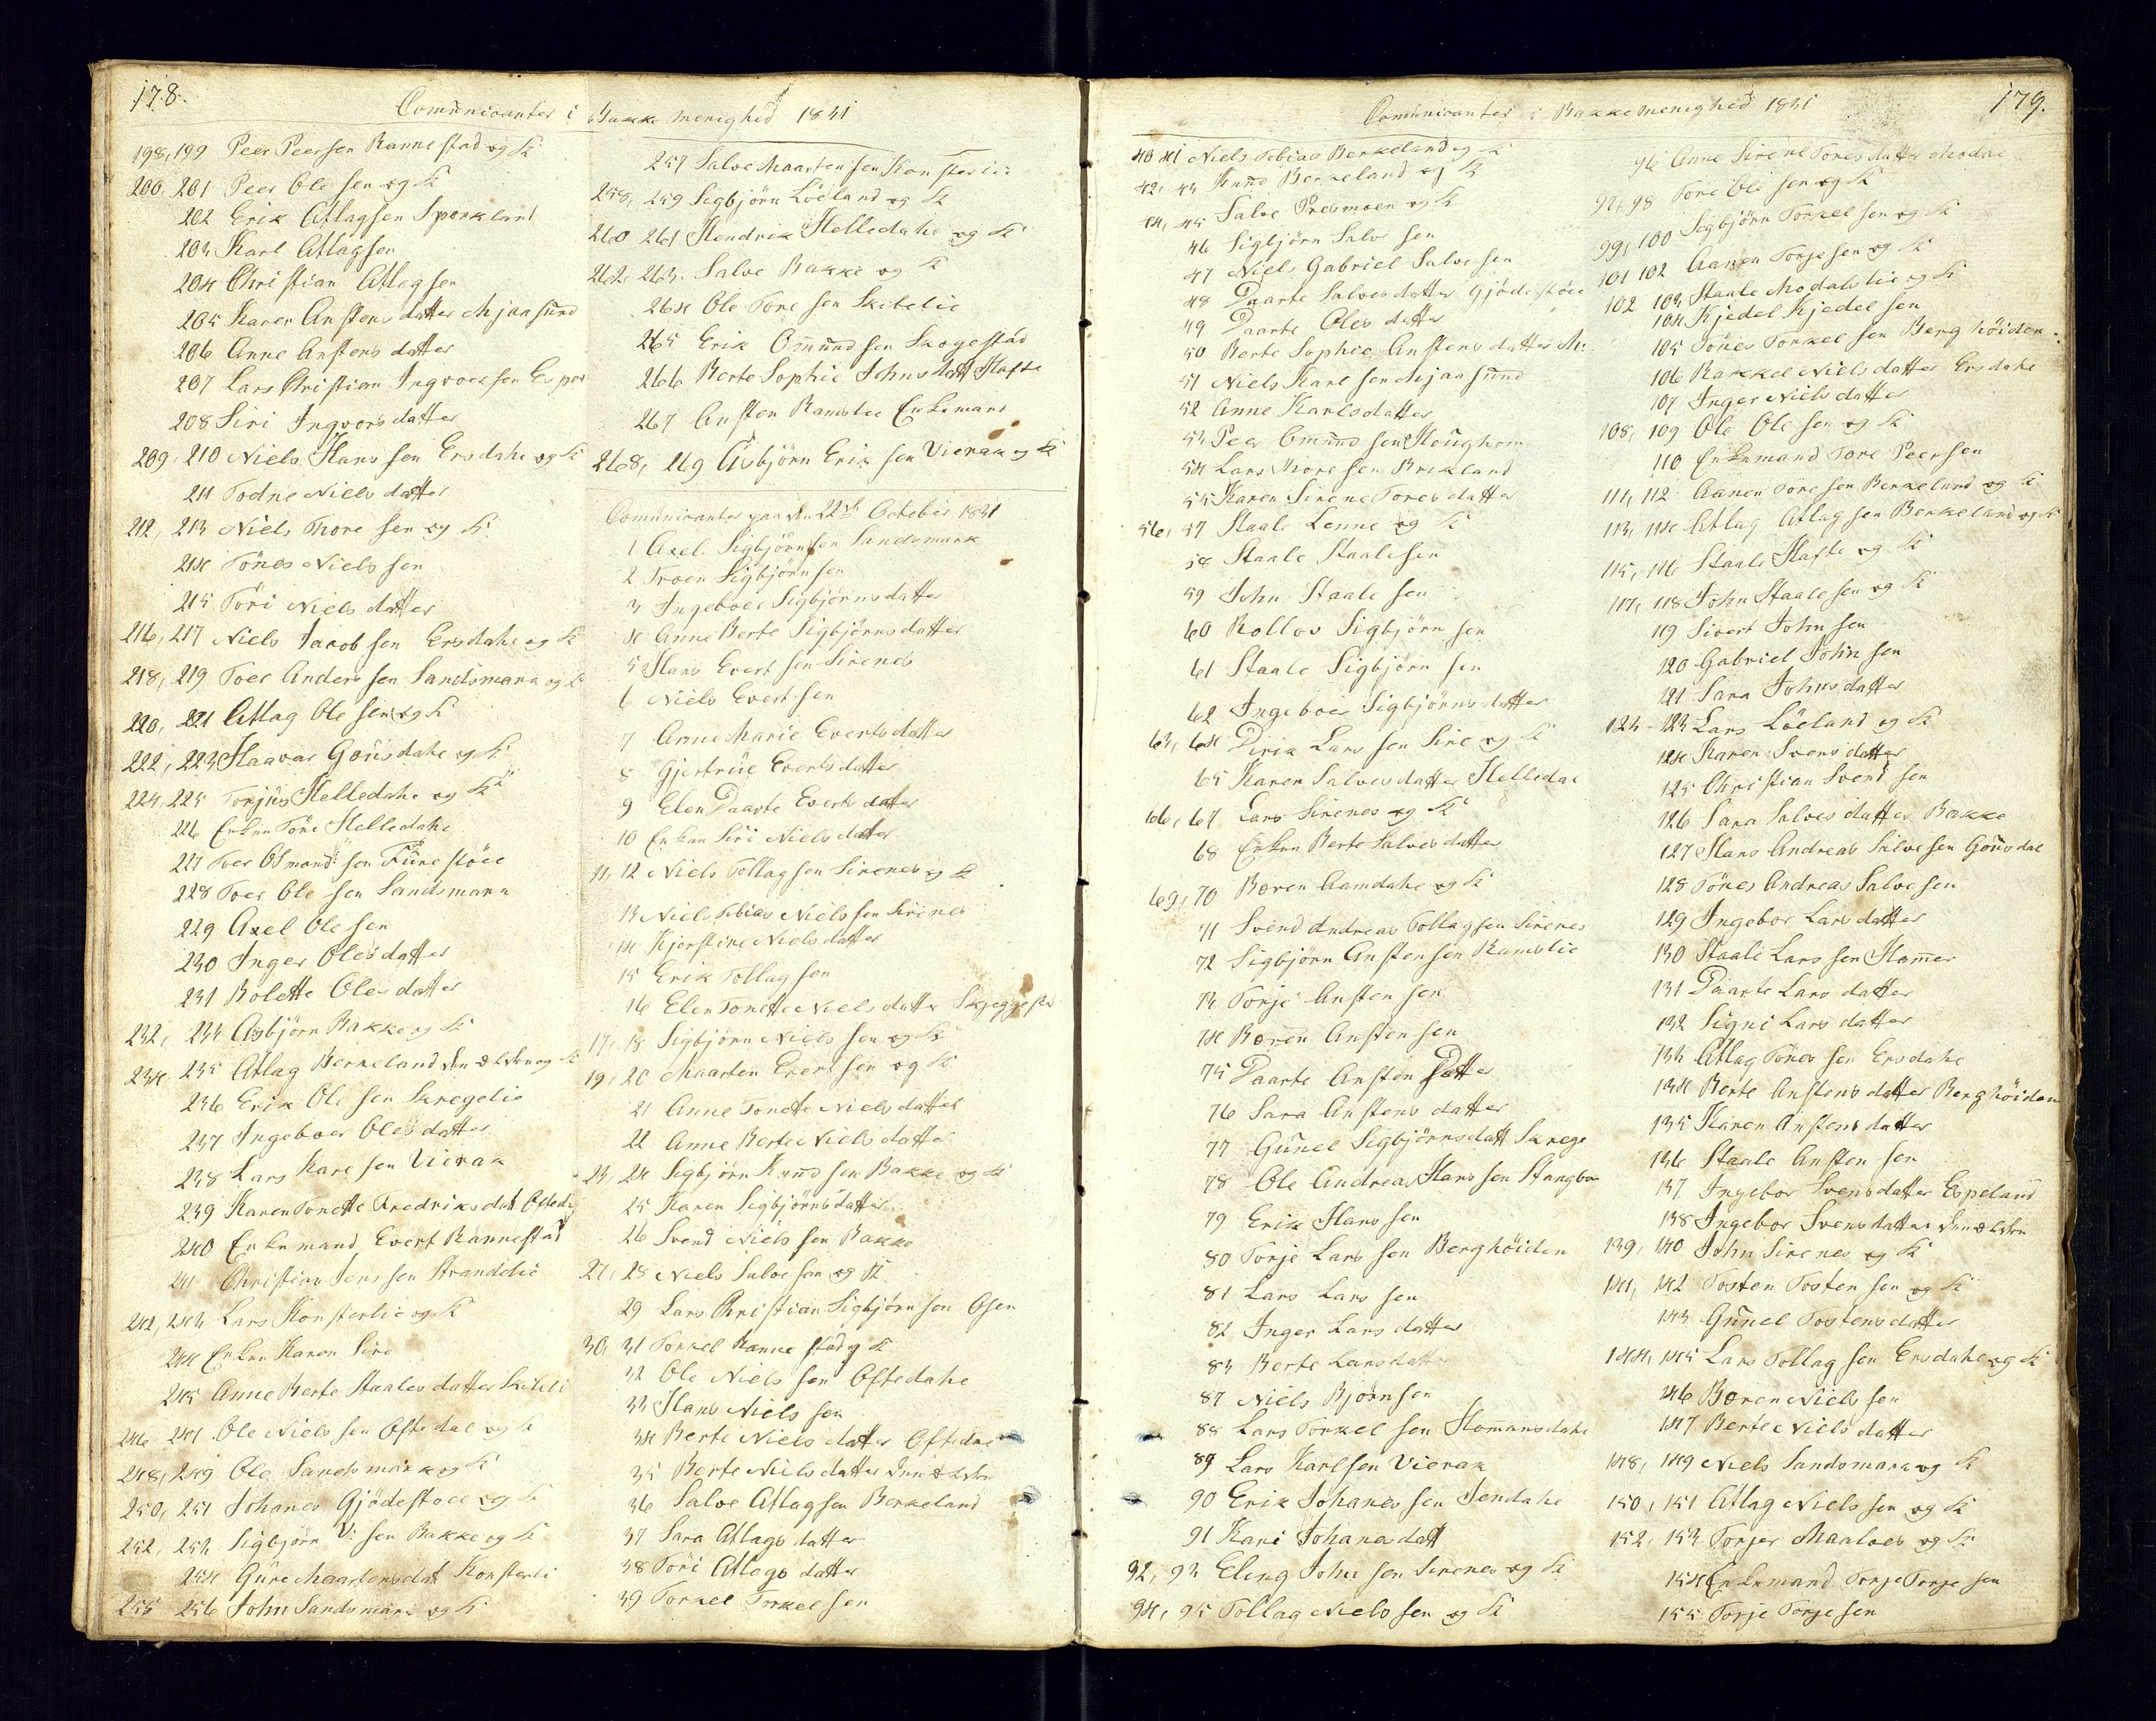 178.
Comūnicanter i Bakke menighed 1831
198, 199 Peer Peersen Rannestad og K
200, 201 Peer Ole sen og K
202 Erik Atlagsen Sporkland
203 Karl Atlagsen
204 Christian Atlagsen
205 Karen Anstens datter Mjaasund
206 Anne Anstens datter
207 Lars Christian Ingvoersen
208 Siri Ingvors datter
209, 210 Niels Hans sen Ersdahe og K
211 Todne Niels datter
212, 213 Niels Thore sen og K
214 Tönes Niels sen
215 Töri Niels datter
216, 217 Niels Jacob sen Ersdahe og K
218, 219 Toer Anders sen Sandsmark og K
220, 221 Atlag Ole sen og K
222, 223 Haavar Goūsdahe og K
224, 225 Torjūs Helledahe og K
226 Enken Töne Helledahe
227 Toer Osmand sen Fūnestöee
228 Toer Ole sen Sandsmark
229 Axel Ole sen
230 Inger Oles datter
231 Bolette Oles datter
232, 233 Asbjörn Bakke og K
234, 235 Atlag Berkeland den ældre og K
236 Erik Ole sen Skregelie
237 Ingeboer Oles datter
238 Lars Kare sen Vierak
239 Karen Tonette Fredriks dat
240 Enkemand Evert Rannestad
241 Christian Jens sen Strandelie
242, 243 Lars Konsterlie og K
244 Enken Karen Sire
245 Anne Berte Staales datter
246 247 Ole Niels sen Oftedal og K
248, 249 Ole Sandsmark og K
250, 251 Johanes Gjödestoee og K
252, 253 Sigbjörn V: sen Bakke og K
254 Gūre Maartensdat Konsterli
255 256 John Sandsmark og K
257 Salve Maarten sen Konsterlie
258, 259 Sigbjörn Löeland og K
260 261 Hendrik Helledahe og K
262 263. Salve Bakke og K
264 Ole Tore sen Skibelie
265 Erik Omund sen Skogestad
266 Berte Sophie Johns datt Hafte
267 Ansten Ramslie Enkemand
268, 269 Asbjörn Erik sen Vierak og K
Comūnicanter paa den 22de October 1831
1 Axel Sigbjörnsen Sandsmark
2 Troen Sigbjörnsen
3 Ingeboer Sigbjörnsdatter
4 Anne Berte Sigbjörnsdatter
5 Hans Evert sen Sirenes
6 Niels Evert sen
7 Anne Marie Evertsdatter
8 Gjertrūe Evertsdatter
9 Elen Daarte Everts datter
10 Enken Siri Niels datter
11, 12 Niels Tollag sen Sirenes og K
13 Niels Tobias Niels sen Sirenes
14 Kjerstine Niels datter
15 Erik Tollag sen
16 Elen Tonette Niels datter
17, 18 Sigbjörn Niels sen og K
19, 20 Maarten Evert sen og K
21 Anne Tonette Niels datter
22 Anne Berte Niels datter
23, 24 Sigbjörn Knūd sen Bakke og K
25 Karen Sigbjörns datter
26 Svend Niels sen Bakke
27, 28 Niels Salve sen og K
29 Lars Christian Sigbjörn sen Osen
30, 31 Torkel Rannestad og K
32 Ole Niels sen Oftedahe
33 Hans Niels sen
34 Berte Niels datter Oftedae
35 Berte Niels datter den ældre
36 Salve Atlagsen Berkeland
37 Sara Atlags datter
38 Töri Atlags datter
39 Torkel Torkel sen
179.
Comūnicanter i Bakkemenighed 1831
40 41 Niels Tobias Berkeland og K
42, 43 Knūd Berkeland og K
44, 45 Salve Presmoen og K
46 Sigbjörn Salve sen
47 Niels Gabriel Salve sen
48 Daarte Salves datter Gjödestöee
49 Daarte Oles datter
50 Berte Sophie Anstens datter
51 Niels Karl sen Mjaasūnd
52 Anne Karlsdatter
53 Peer Omūnd sen Houghom
54 Lars Thore sen Birkland
55 Karen Sirene Tores datter
56, 57 Staale Lenne og K
58 Staale Staalesen
59 John Staale sen
60 Rollov Sigbjörn sen
61 Staale Sigbjörn sen
62 Ingeboer Sigbjörns datter
63, 64 Dirik Lars sen Sire og K
65 Karen Salves datter Helledal
66, 67 Lars Sirenes og K
68 Enken Berte Salvesdatter
69, 70 Boren Aamdahe og K
71 Svend Andreas Tollagsen Sirenes
72 Sigbjörn Ansten sen Ramslie
73 Torje Ansten sen
74 Boren Ansten sen
75 Daarte Ansten Datter
76 Sara Anstens datter
77 Gūnel Sigbjörnsdatt Skrege
78 Ole Andreas Hans sen
79 Erik Hans sen
80 Torje Lars sen Berghöiden
81 Lars Lars sen
82 Inger Lars datter
83 Berte Larsdatter
87 Niels Bjørnsen
88 Lars Torkel sen Homansdahe
89 Lars Karlsen Vierak
90 Erik Johanes sen Jendahe
91 Kari Johanes datt
92, 93 Eleng John sen Sirenes og K
94, 95 Tollag Niels sen og K
96 Anne Sirene Tores datter Modal
97, 98 Tore Ole sen og K
99, 100 Sigbjörn Torkel sen og K
101 102 Aanen Torje sen og K
102 103 Staale Modalslie og K
104 Kjedel Kjedel sen
105 Tönes Torkel sen Berghöiden
106 Rakkel Niels datter Ersdahe
107 Inger Niels datter
108, 109 Ole Ole sen og K
110 Enkemand Tore Peersen
111, 112 Aanen Tore sen Berkeland og K
113, 114 Atlag Atlag sen Berkeland og K
115, 116 Staale Hafte og K
117, 118 John Staale sen og K
119 Sivert John sen
120 Gabriel John sen
121 Sara Johnsdatter
123 - 123 Lars Löeland og K
124 Karen Svens datter
125 Christian Svend sen
126 Sara Salves datter Bakke
127 Hans Andreas Salve sen Goūsdal
128 Tönes Andreas Salve sen
129 Ingebor Lars datter
130 Staale Lars sen Homer
131 Daarte Lars datter
132 Signi Lars datter
133 Atlag Tönes sen Ersdahe
134 Berte Anstens datter Berghöiden
135 Karen Anstens datter
136 Staale Ansten sen
137. Ingebor Svensdatter Espeland
138 Ingebor Svens datter den ældre
139, 140 John Sirenes og K
141, 142 Tosten Tosten sen og K
143 Gūnel Tostens datter
144, 145 Lars Tollag sen Ersdahe og K
146 Boren Niels sen
147 Berte Niels datter
148, 149 Niels Sandsmark og K
150, 151 Atlag Niels sen og K
152, 153 Torjer Maaloes og K
154 Enkemand Torje Torje sen
155 Torje Torje sen